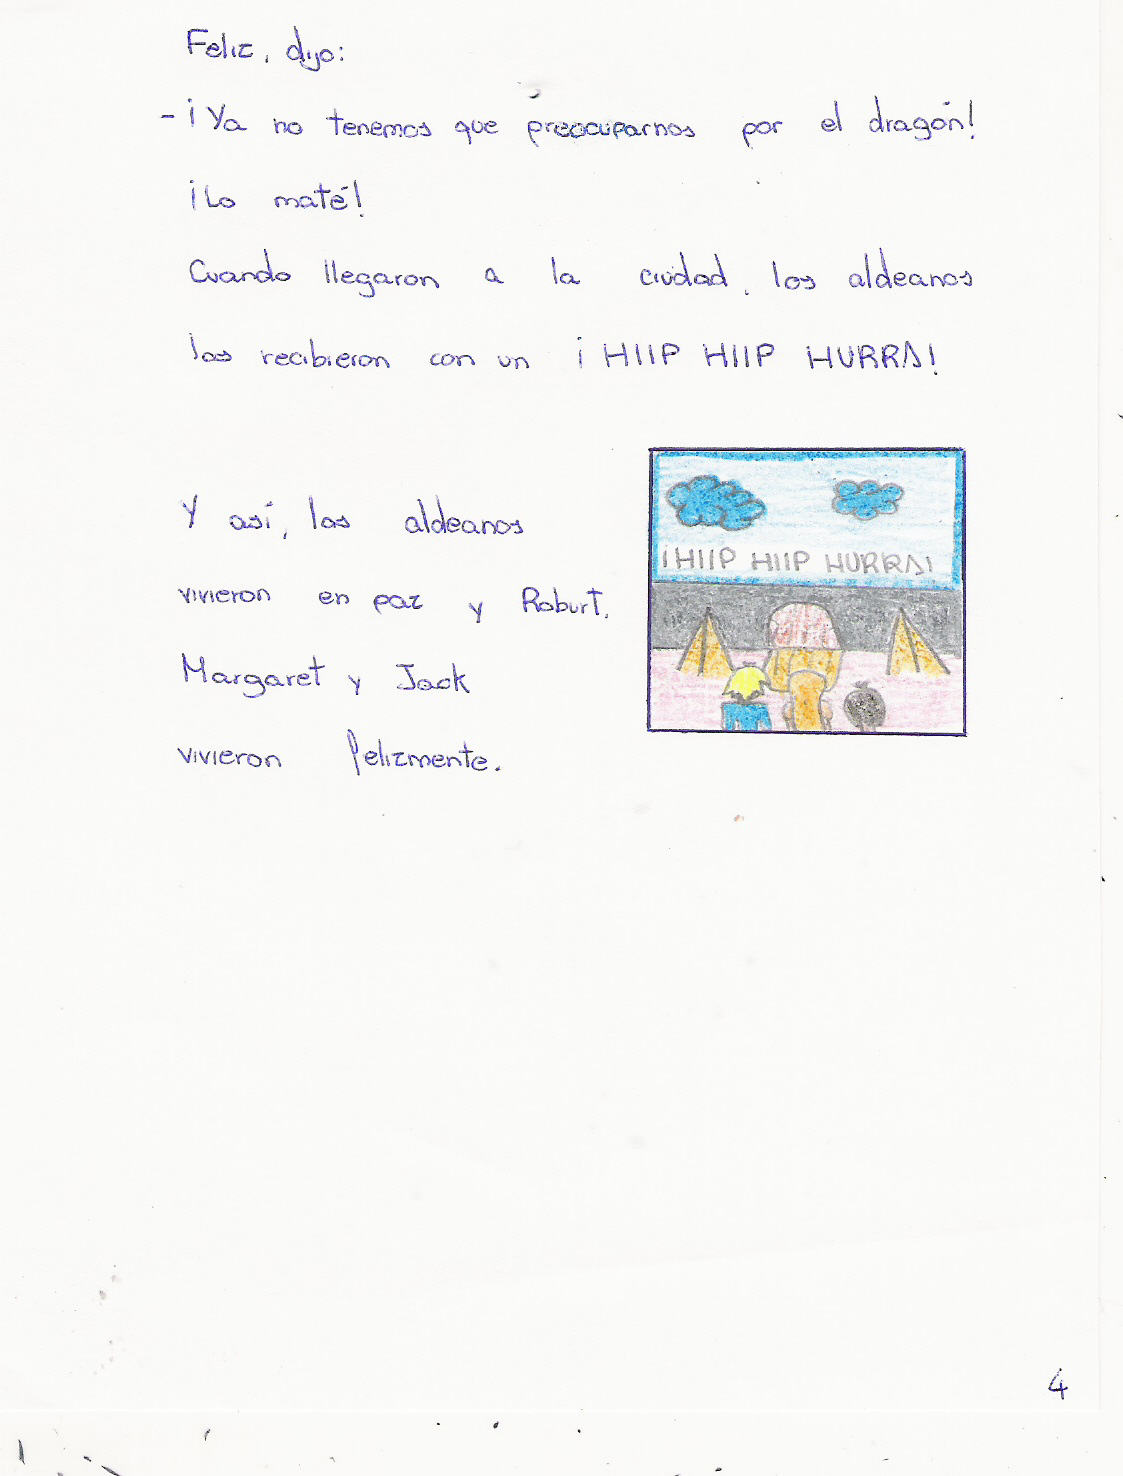 Feliz, dijo:
-¡Ya no tenemos que preocuparnos por el dragón!
¡Lo maté!
Cuando llegaron a la ciudad, los aldeanos
los recibieron con un ¡HIIP HIIP HURRA!
Y así, los aldeanos
vivieron en paz y Roburt,
Margaret y Jack
vivieron felizmente.
¡HIIP HIIP HURRA!
4